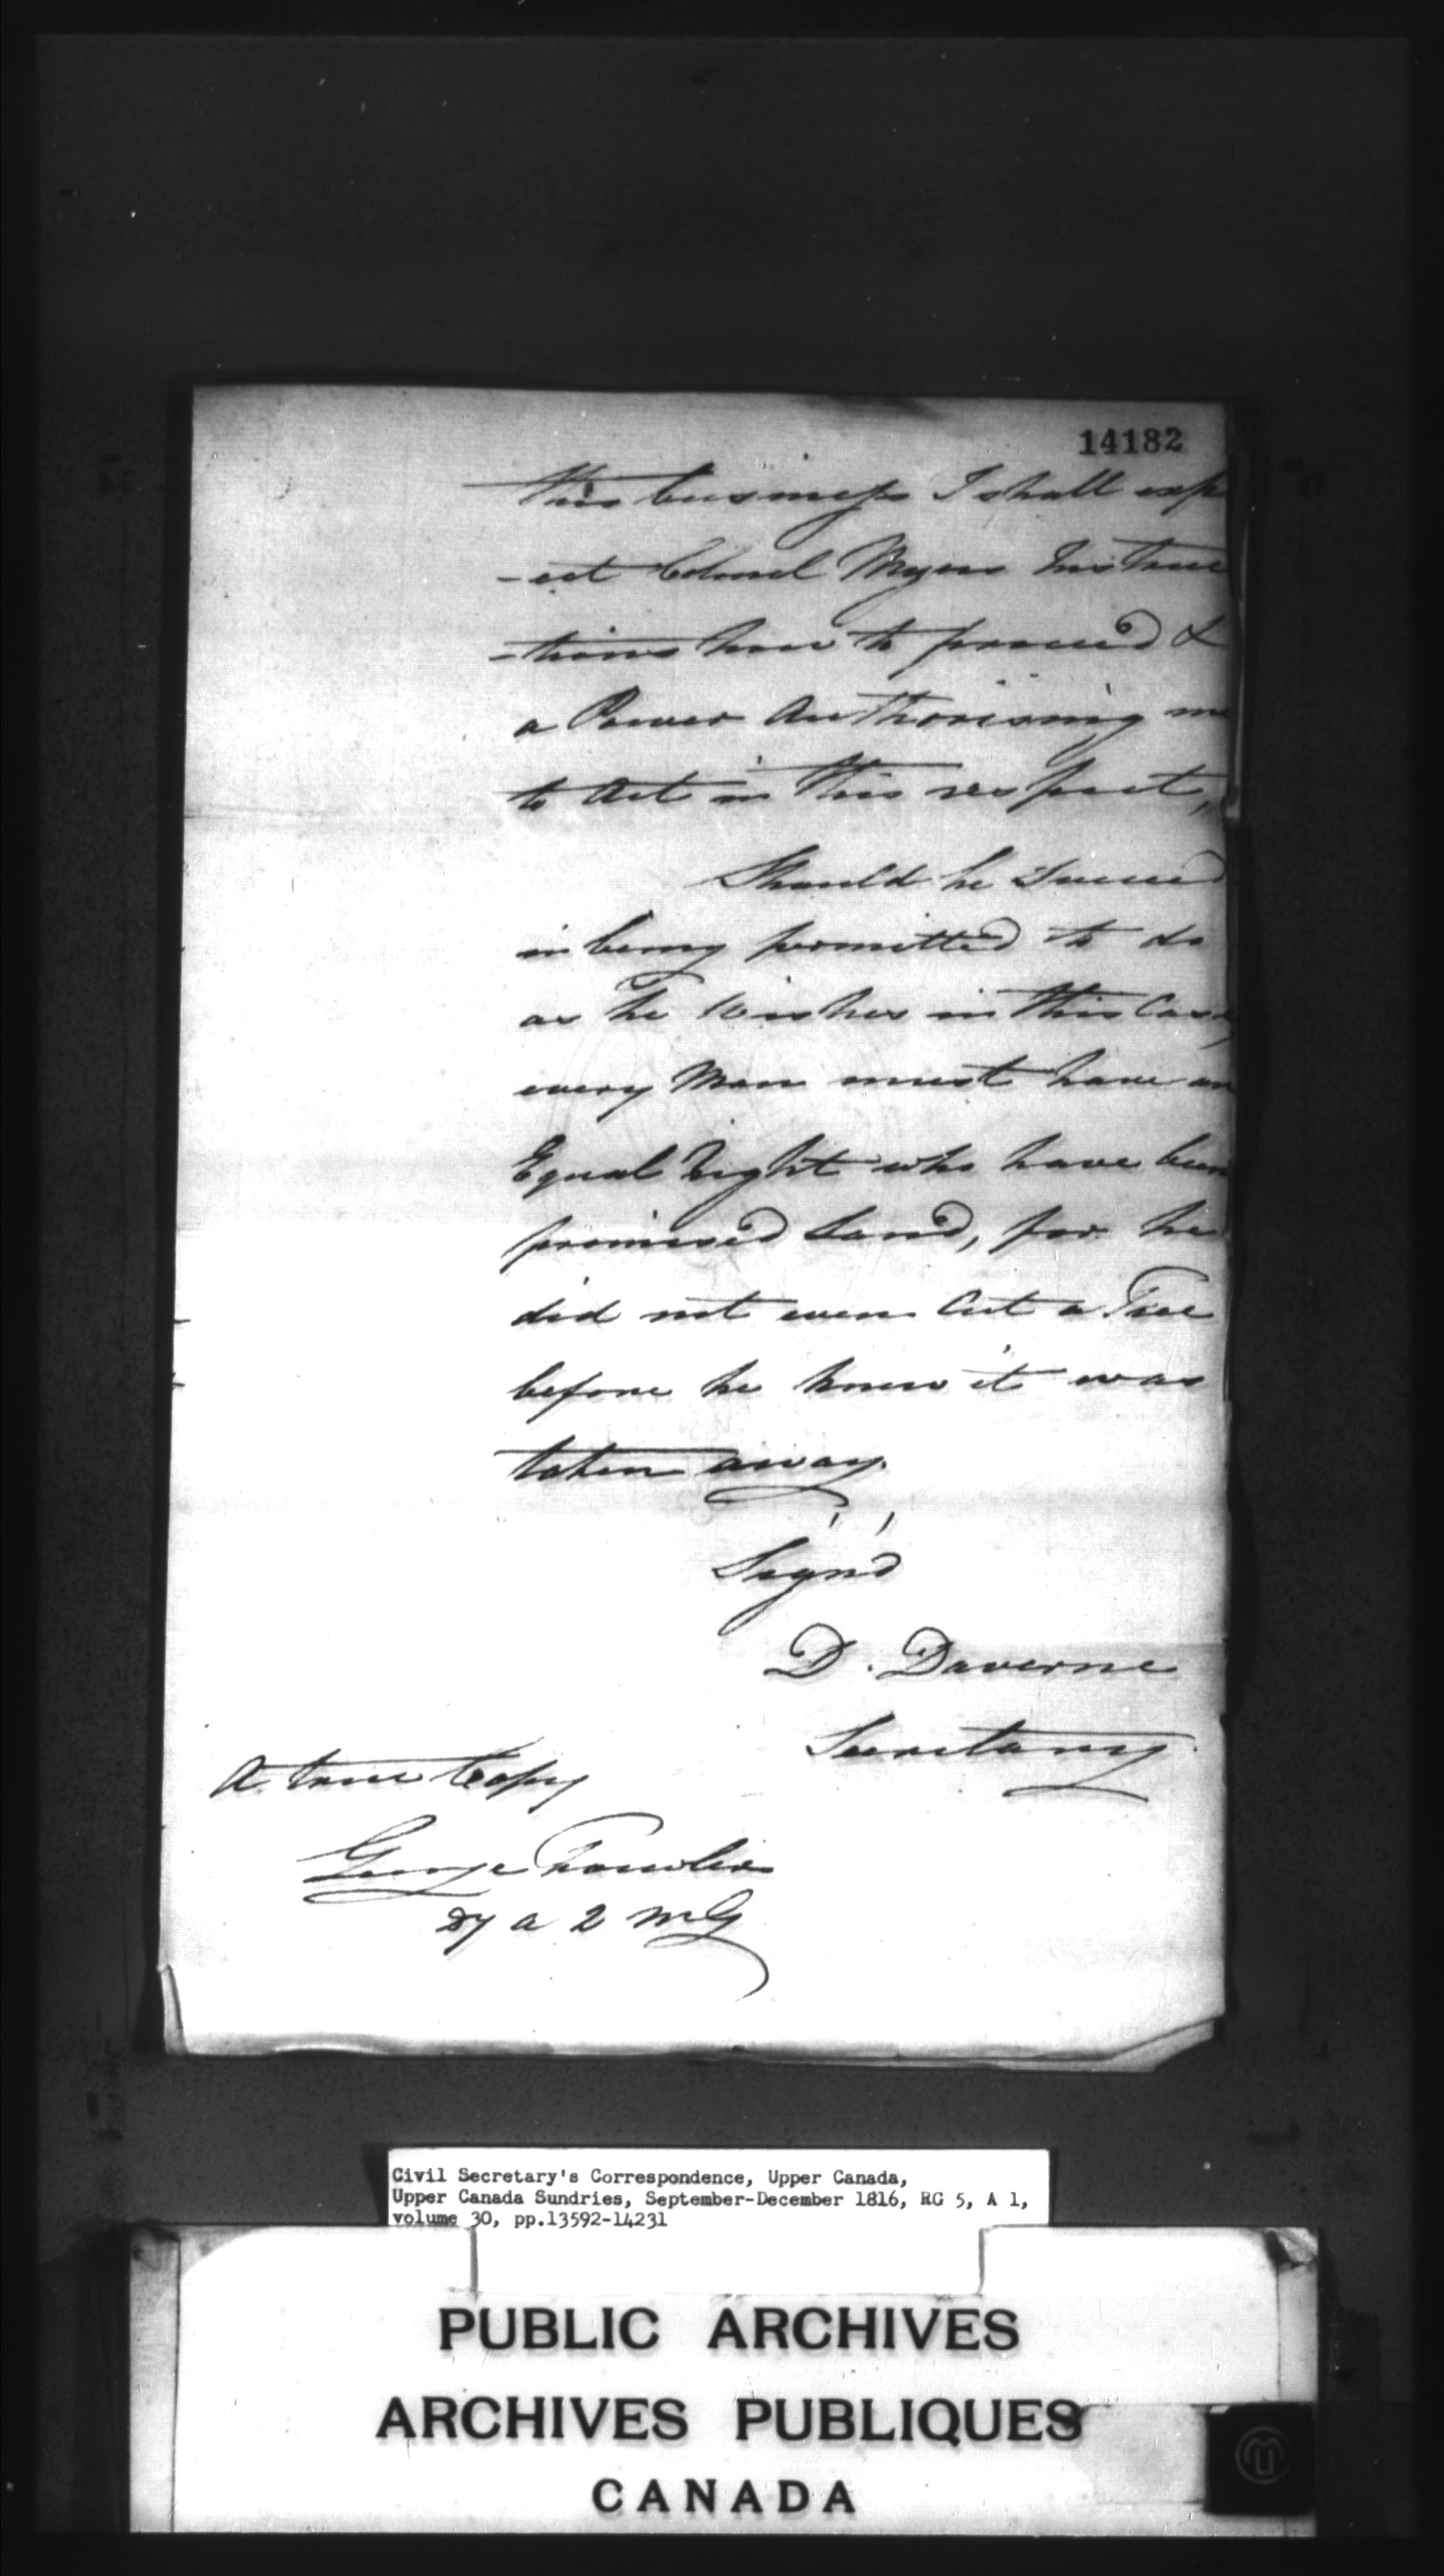 14182
this business I shall exp
-ect Colonel Myers Instruc
-tions how to proceed &
a Power Authorising me
to Act in this respect,
Should he Succeed
in being permitted to do
as he Wishes in this Case,
every Man must have an
Equal right who have been
promised Land, for he
did not even Cut a Tree
before he knew it was
taken away.
Sign'd
D. Daverne
Secretary
A true Copy
George Fowler
Dy A Q M G
Civil Secretary's Correspondence, Upper Canada,
Upper Canada Sundries, September-December 1816, RG 5, A 1,
volume 30, pp.13592-14231
PUBLIC ARCHIVES
ARCHIVES PUBLIQUES
CANADA